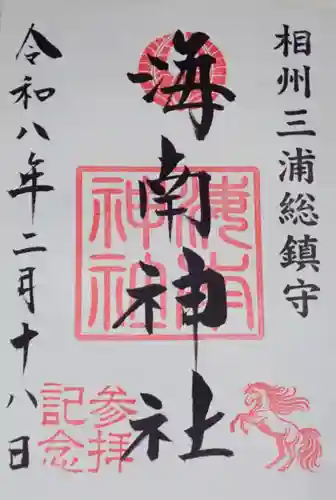 相州三浦総鎮守
海南神社
海南神社
参拝記念
令和八年二月十八日